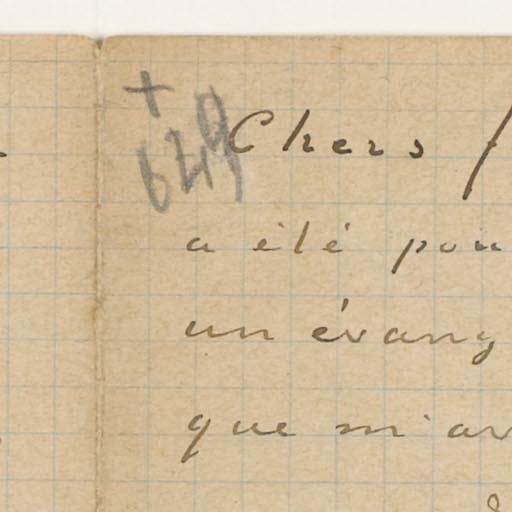 +
649
Chers
a été pou
un évang
que m'av